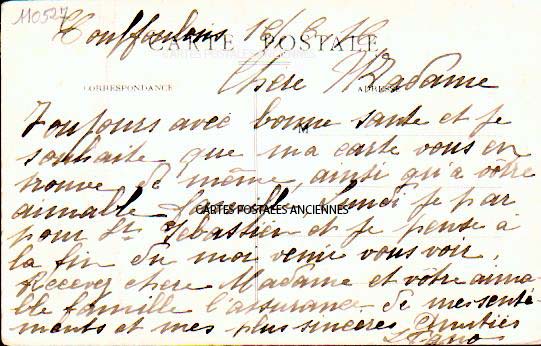 110527
Conffoulens 12/6/10
CARTE POSTALE
CORRESPONDANCE
ADRESSE
Chere Madame
Toujours avec bonne sante et je
souhaite que ma carte vous en
M
trouve de même, ainsi qu'a vôtre
aimalle famille Lundi je par
CARTES POSTALES ANCIENNES
pour St Sebastien et je pense à
la fin du moi venir vous voir,
Recevez chere Madame et votre aima
ble famille l'assurance de mes senti
ments et mes plus sinceres Amitiés